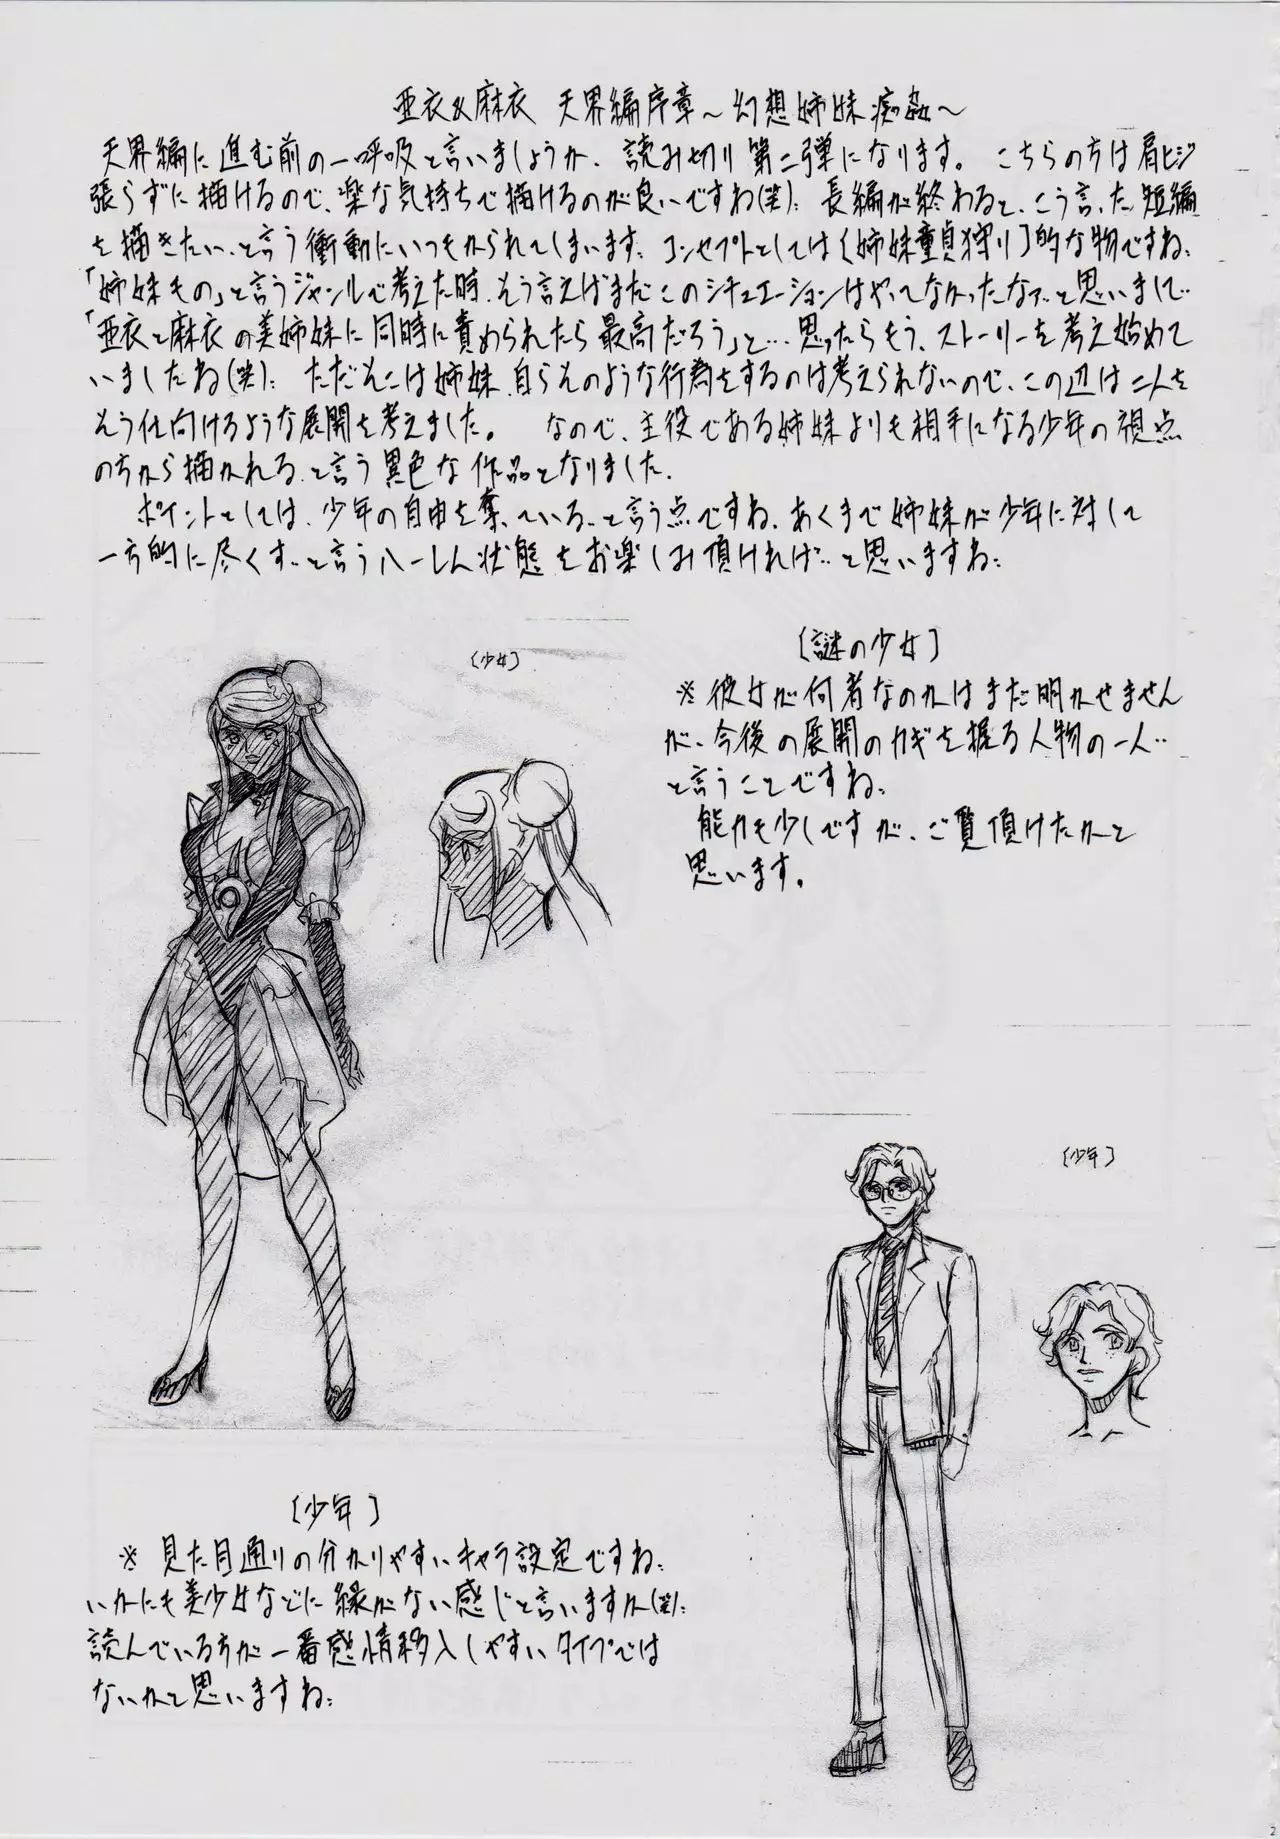 亜衣&麻衣 天界編序章～幻想姉妹痴姦～
天界編に進む前の一呼吸と言いましょうか、読み切り第二弾になります。 こちらの方は肩ヒジ
張らずに描けるので、楽な気持ちで描けるのが良いですね(笑); 長編が終わると、こう言った短編
を描きたい…と言う衝動にいつもかられてしまいます、コンセプトとしては〔姉妹童貞狩り〕的な物ですね;
「姉妹もの」と言うジャンルで考えた時、そう言えばまだこのシチュエーションはやってなかったなァ…と思いまして…
「亜衣と麻衣の美姉妹に同時に責められたら最高だろう」と…思ったらもう、ストーリーを考え始めて
いましたね(笑); ただそこは姉妹、自らそのような行為をするのは考えられないので、この辺は二人を
そう仕向けるような展開を考えました。 なので、主役である姉妹よりも相手になる少年の視点
の方から描かれる、と言う異色な作品となりました.
ポイントとしては、少年の自由を奪っている…と言う点ですね、あくまで姉妹が少年に対して
一方的に尽くす…と言うハーレム状態をお楽しみ頂ければ…と思いますね;
〔少女〕
〔謎の少女〕
※彼女が何者なのかはまだ明かせません
が、今後の展開のカギを握る人物の一人…
と言うことですね;
能力も少しですが、ご覧頂けたかと
思います。
〔少年〕
〔少年〕
※ 見た目通りの分かりやすいキャラ設定ですね;
いかにも美少女などに縁がない感じと言いますか(笑);
読んでいる方が一番感情移入しやすいタイプでは
ないかと思いますね;
2